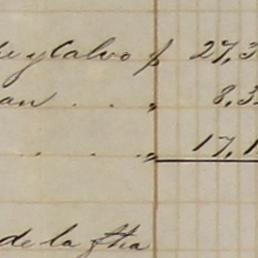 y Calvo p 27,3
an . . " 8,3
. . . " 17,1
de la fha